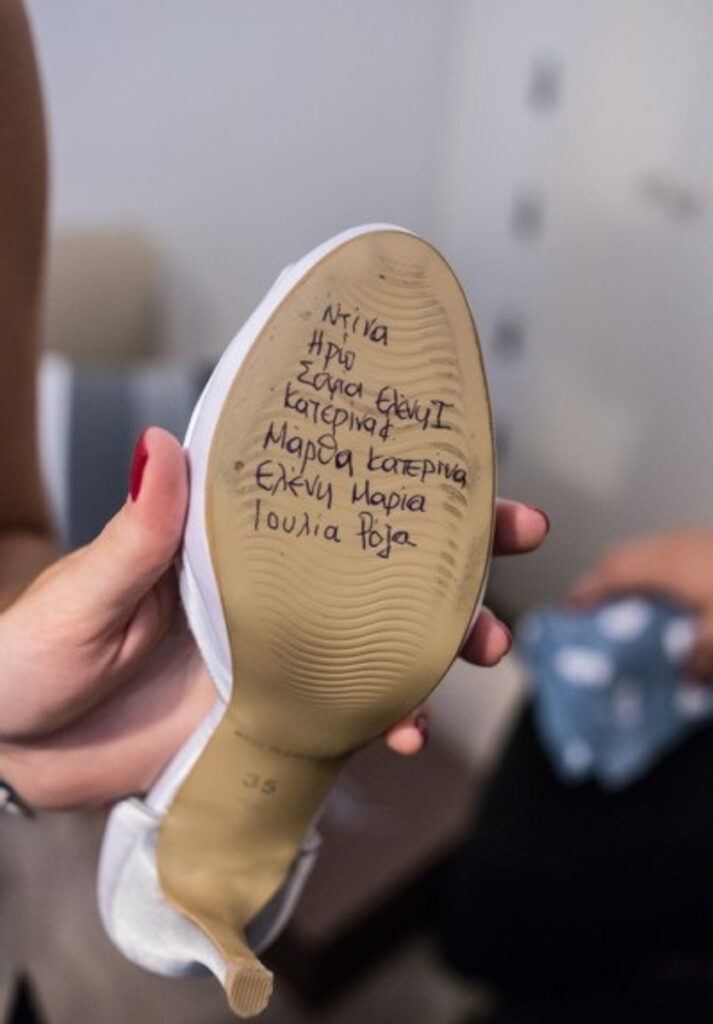 Ντίνα
Ηρώ
Σοφία Ελένη Ι
Κατερίνα
Μάρθα Κατερίνα
Ελένη Μαρία
Ιουλία Ρόζα
35